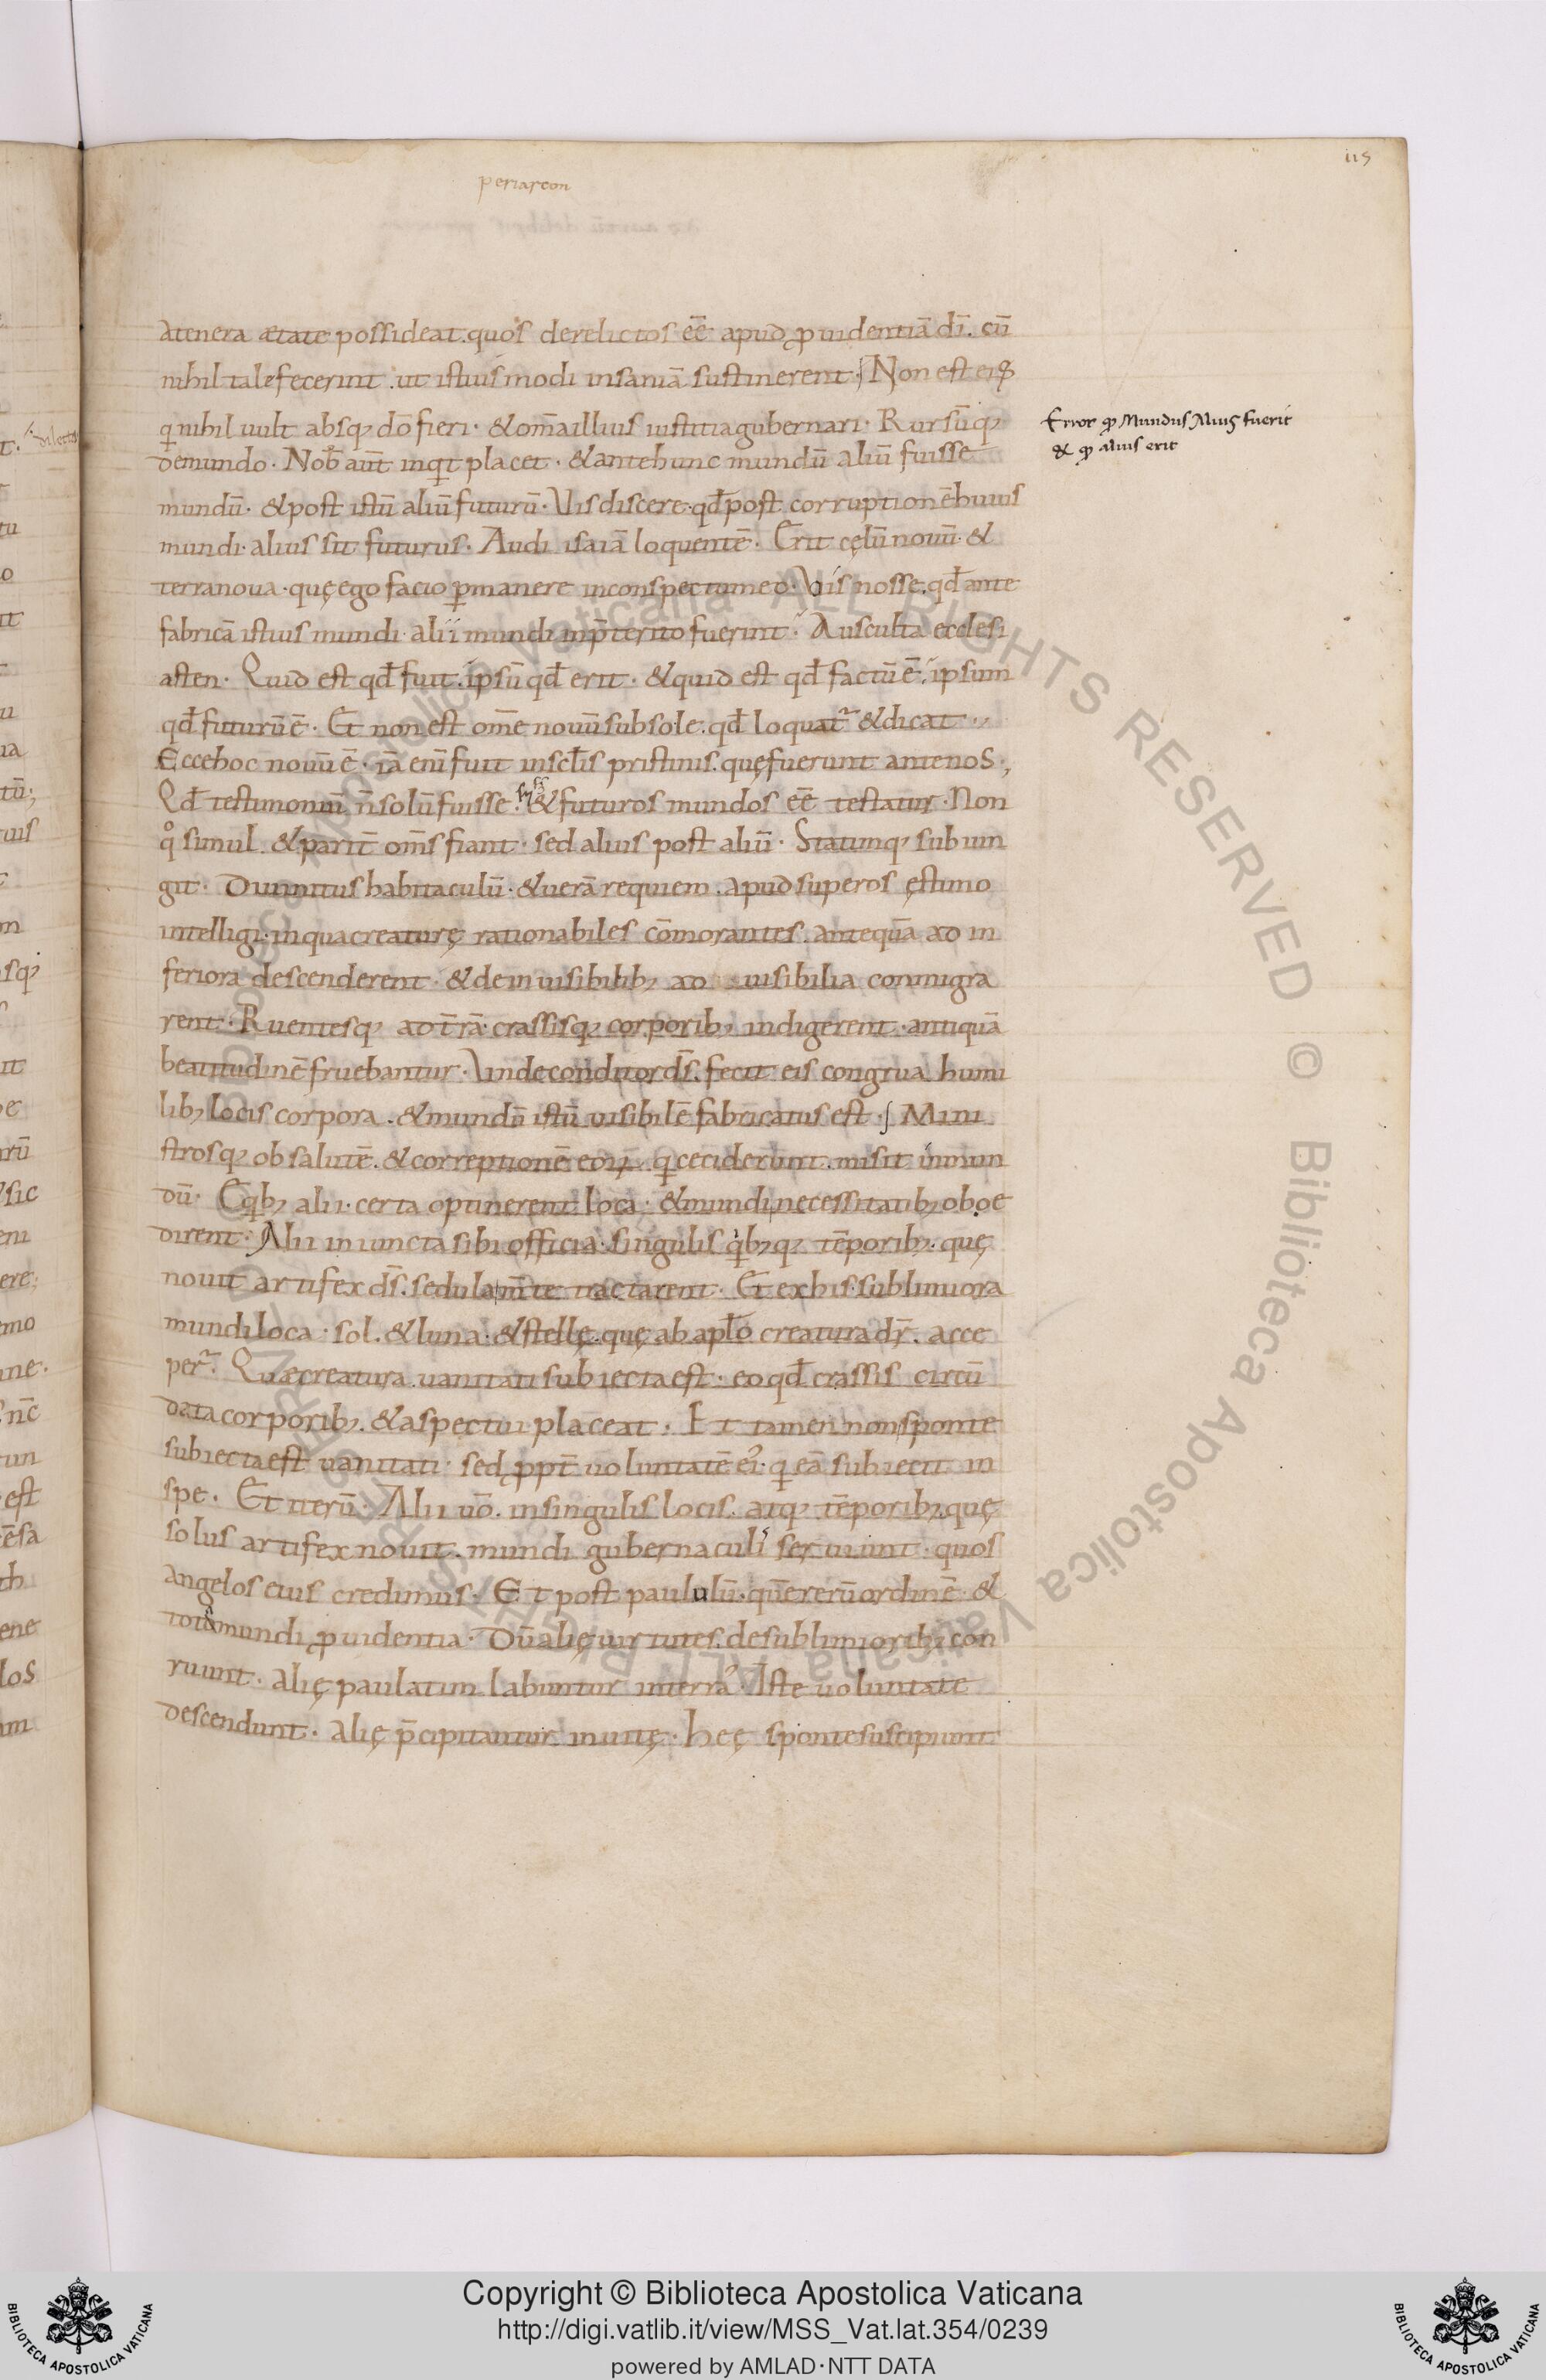 periarcon
115
Atenera ætate possideat. quos derelictos eē apud ꝓuidentiā dī. cū
nihil tale fecerint. ut istiusmodi insaniā sustinerent. Non est eīs
q nihil uult absq; dō fieri. & om̄a illius iustitia gubernari. Rursūq;
demundo. Nob̄ aut̄ inq̇t placet. & ante hunc mundū aliū fuisse
mundū. & post istū aliū futurū. Vis discere. qđ post corruptionē huius
mundi. alius sit futurus. Audi isaiā loquentē. Erit cęlū nouū. &
terra noua. quę ego facio ꝑmanere in conspectu meo. Vis nosse. qđ ante
fabricā istius mundi. alii mundi in p̄terito fuerint. Ausculta ecclesi
asten. Quid est qđ fuit. ipsū qđ erit. & quid est qđ factū ē. ipsum
qđ futurū ē. Et non est om̄e nouū sub sole. qđ loquat̄ & dicat.
Ecce hoc nouū ē. iā eni fuit in sc̄lis pristinis. quę fuerunt ante nos.
Qđ testimoniū n̄ solū fuisse. s; & futuros mundos eē testatur. Non
qo simul. & parit̄ om̄s fiant. sed alius post aliū. Statimq; subiun
git. Diuinitus habitaculū. & uerā requiem. apud superos ęstimo
intelligi. in qua creaturę rationabiles cōmorantes. antequā ad in
feriora descenderent. & de inuisibilib; ad uisibilia conmigra
rent. Ruentesq; ad t̄rā. crassisq; corporib; indigerent. antiquā
beatitudinē fruebantur. Unde conditor d̄s. fecit eis congrua humi
lib; locis corpora. & mundū istū uisibilē fabricatus est. Mini
strosq; ob salutē. & correptionē eoꝝ. q ceciderunt. misit in mun
dū. Eqb; alii. certa optinerent loca. & mundi necessitatib; oboe
dirent. Alii iniuncta sibi officia. singulis qb;q; tēporib;. quę
nouit artifex d̄s. sedula m̄te tractarent. Et ex his. sublimiora
mundi loca. sol. & luna. & stellę. quę ab apl̄o creatura dr̄. acce
per̄. Quæ creatura uanitati subiecta est. eo qđ crassis circū
data corporib;. & aspectui placeat. Et tamen non sponte
subiecta est uanitati. sed ꝓpt̄ uoluntatē ei'. q eā subiecit in
spe. Et iterū. Alii uō. in singulis locis. atq; tēporib;. quę
solus artifex nouit. mundi gubernaculis seruiunt. quos
angelos eius credimus. Et post paululū. quē rerū ordinē. &
totiꝰ mundi ꝓuidentia. Dū alię uirtutes. de sublimiorib; con
ruunt. alię paulatim labuntur in terrā. Iste uoluntate
descendunt. alię p̄cipitantur inuitę. heę sponte suscipiunt
Error ꝙ Mundus Aliꝰ fuerit
& ꝙ alius erit
Copyright © Biblioteca Apostolica Vaticana
http://digi.vatlib.it/view/MSS_Vat.lat.354/0239
powered by AMLAD·NTT DATA
BIBLIOTECA APOSTOLICA VATICANA
BIBLIOTECA APOSTOLICA VATICANA